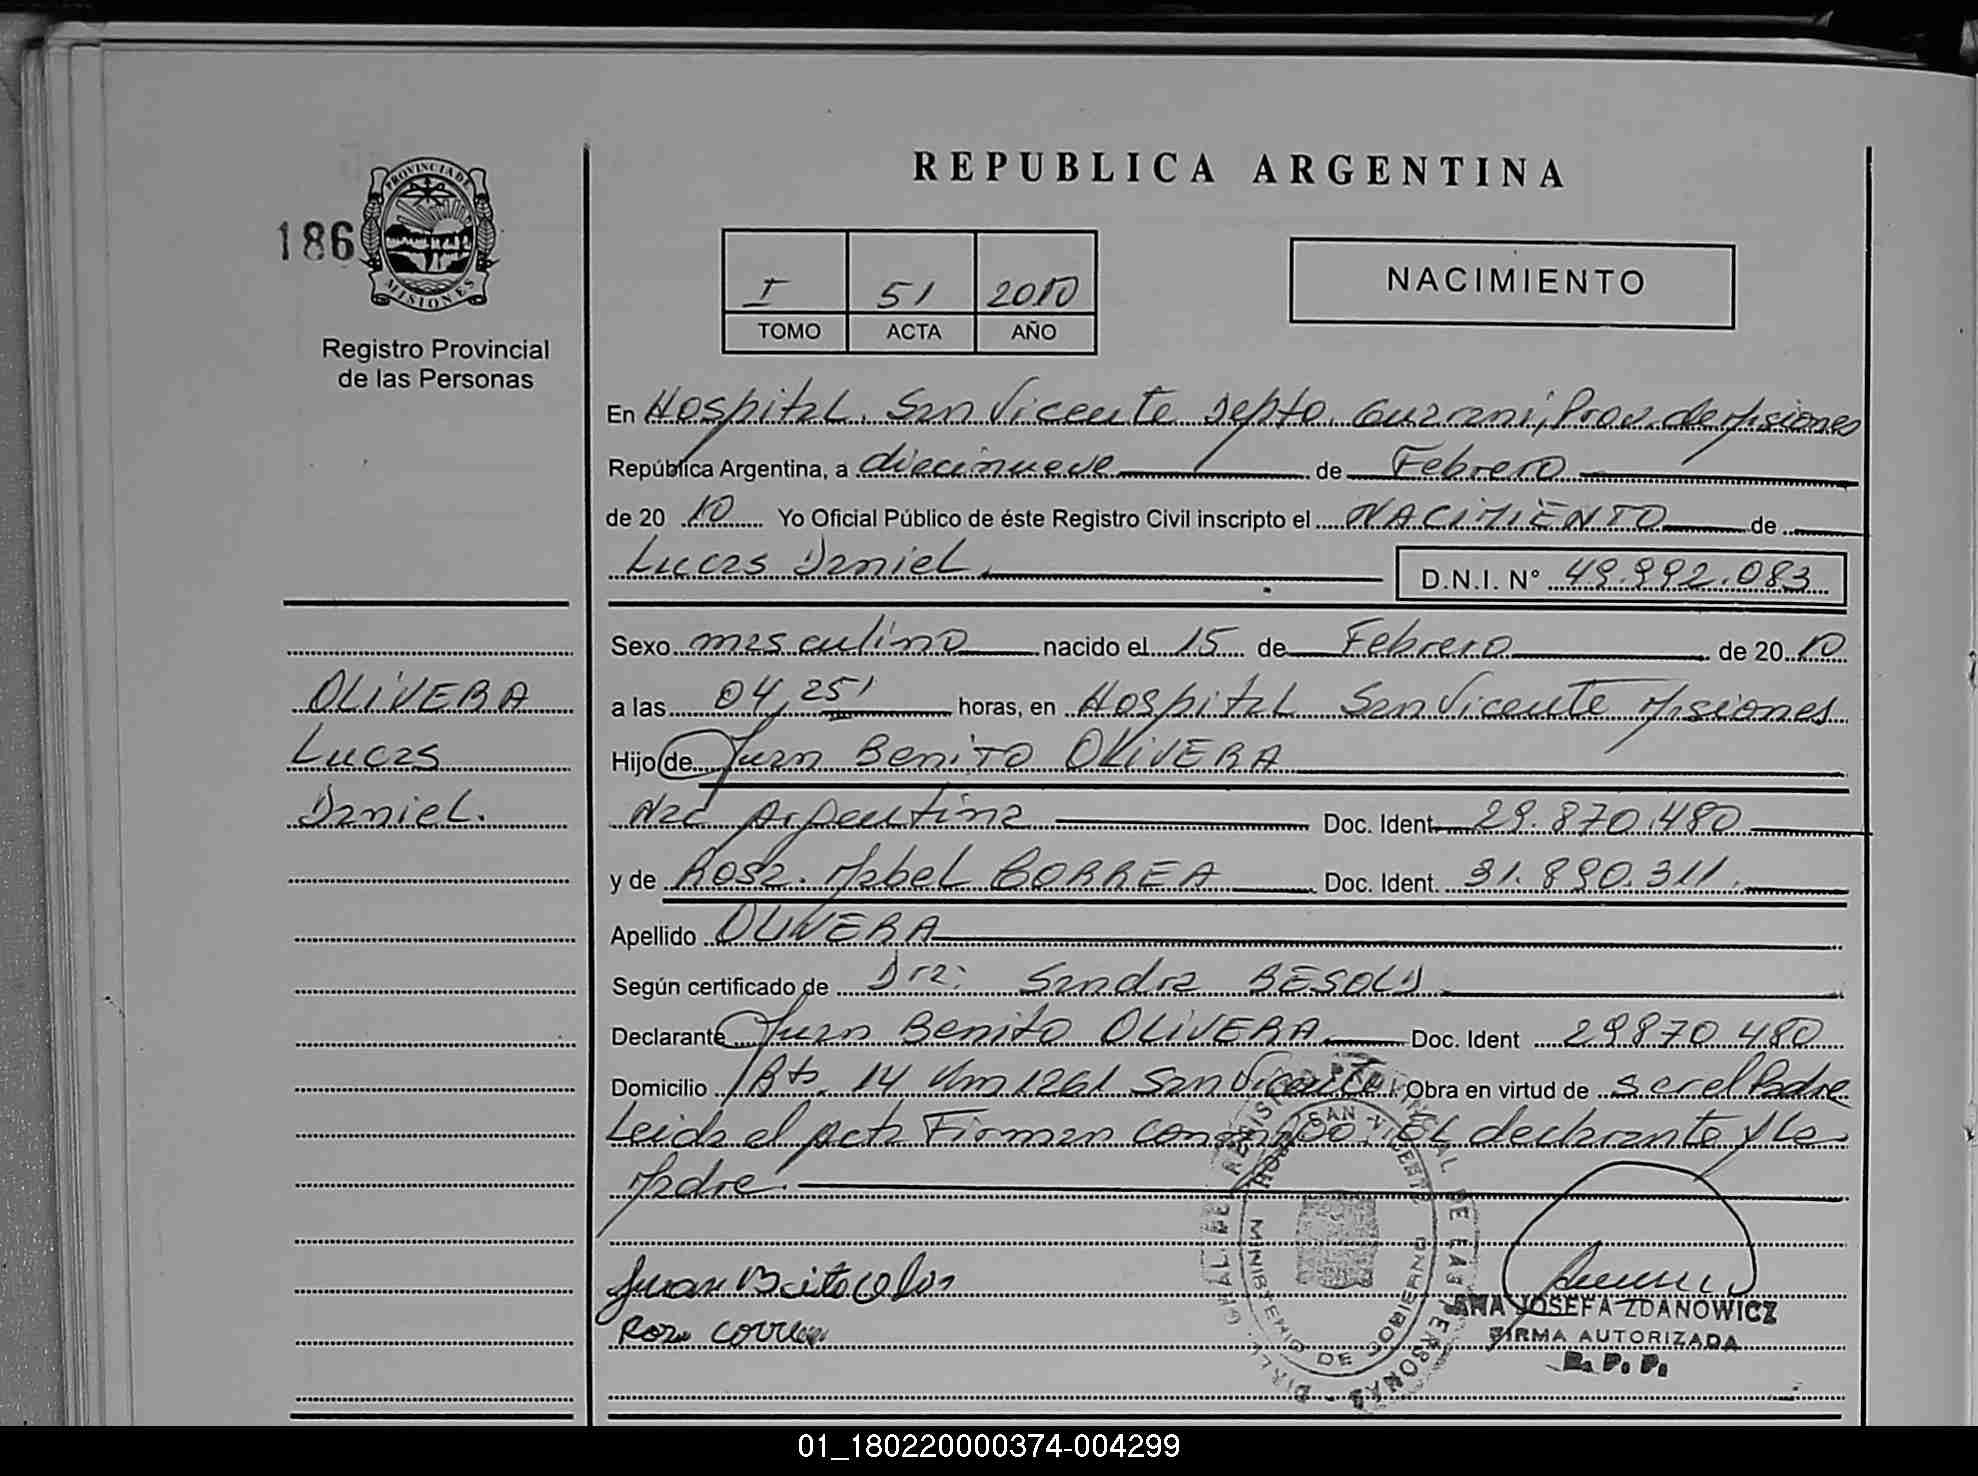 REPUBLICA ARGENTINA
186
PROVINCIA DE MISIONES
Registro Provincial
de las Personas
I 51 2010
TOMO ACTA AÑO
NACIMIENTO
En Hospital San Vicente Depto. Guarani, Prov. de Misiones
República Argentina, a diecinueve de Febrero
de 2010 Yo Oficial Público de éste Registro Civil inscripto el NACIMIENTO de
Lucas Daniel. D.N.I. N° 49.992.083
Sexo masculino nacido el 15 de Febrero de 2010
a las 04,25' horas, en Hospital San Vicente Misiones
Hijo de Juan Benito OLIVERA
Nac Argentina Doc. Ident 29.870.480
y de Rosa Mabel CORREA Doc. Ident. 31.890.311.
Apellido OLIVERA
Según certificado de Dra: Sandra BESOLD
Declarante Juan Benito OLIVERA Doc. Ident 29870480
Domicilio Rta. 14 Km 1261 San Vicente Obra en virtud de ser el Padre
Leida el acta Firman conmigo. El declarante y la
Madre.
OLIVERA
Lucas
Daniel.
Juan
Rosa Correa
ANA JOSEFA ZDANOWICZ
FIRMA AUTORIZADA
R. P. P.
REGISTRO PROVINCIAL DE LAS PERSONAS
MINISTERIO DE GOBIERNO
01_180220000374-004299